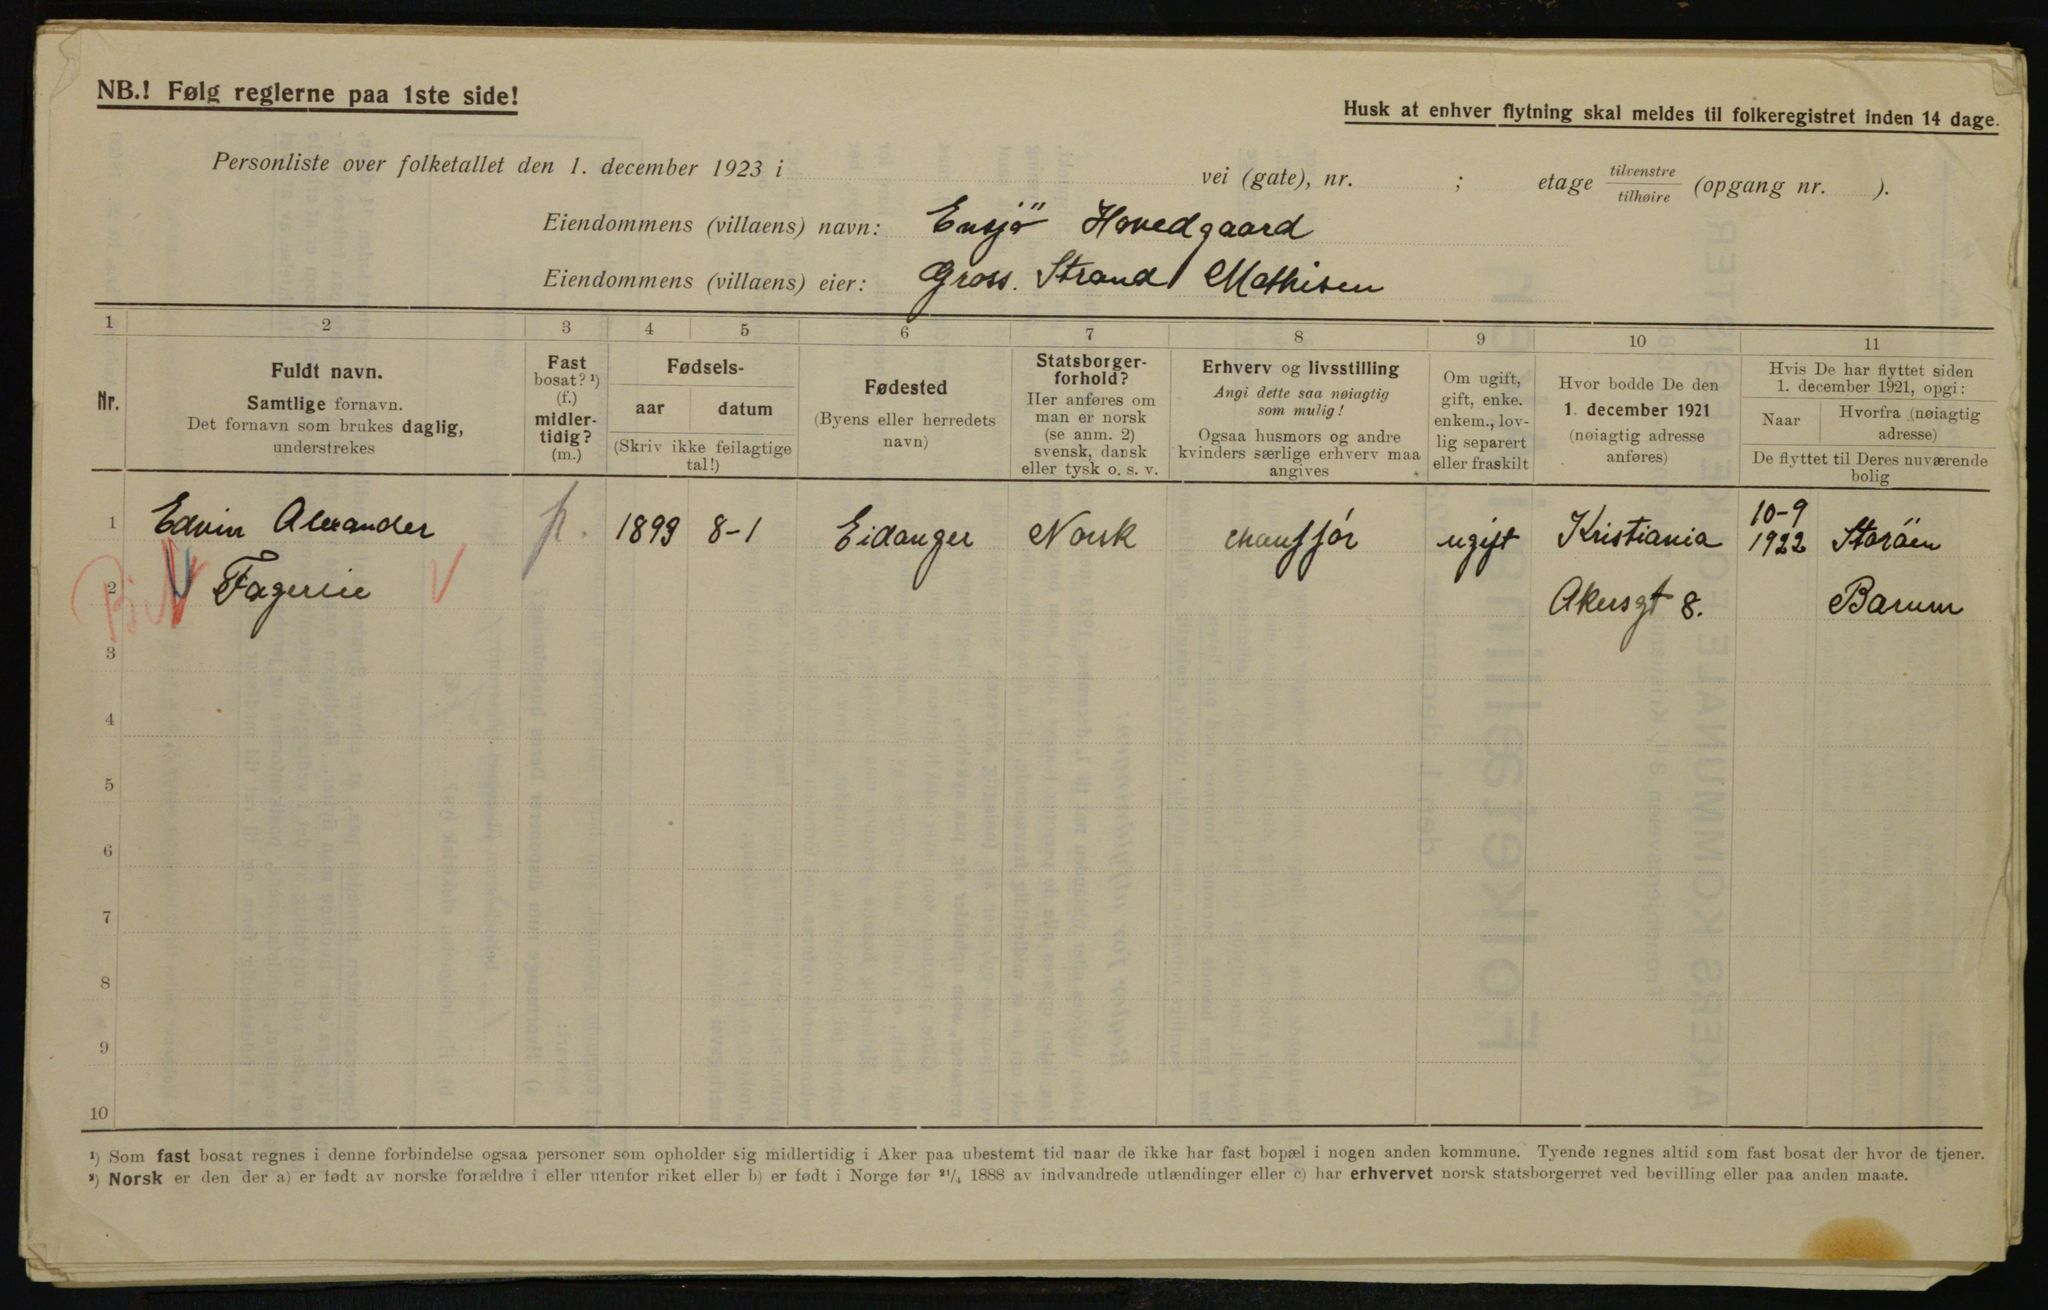 NB.! Følg reglerne paa 1ste side!
Husk at enhver flytning skal meldes til folkeregistret inden 14 dage.
Personliste over folketallet den 1. december 1923 i vei (gate), nr. ; etage tilvenstre tilhøire (opgang nr. ).
Eiendommens (villaens) navn: Ensjö Hovedgaard
Eiendommens (villaens) eier: Gross. Strand Mathisen
1 2 3 4 5 6 7 8 9 10 11
Nr.
Fuldt navn.
Samtlige fornavn.
Det fornavn som brukes daglig,
understrekes
Fast
bosat? ¹)
(f.)
midler-
tidig?
(m.)
Fødsels-
aar datum
(Skriv ikke feilagtige
tal!)
Fødested
(Byens eller herredets
navn)
Statsborger-
forhold?
Her anføres om
man er norsk
(se anm. 2)
svensk, dansk
eller tysk o. s. v.
Erhverv og livsstilling
Angi dette saa nøiagtig
som mulig!
Ogsaa husmors og andre
kvinders særlige erhverv maa
angives
Om ugift,
gift, enke.
enkem., lov-
lig separert
eller fraskilt
Hvor bodde De den
1. december 1921
(nøiagtig adresse
anføres)
Hvis De har flyttet siden
1. december 1921, opgi:
Naar Hvorfra (nøiagtig
adresse)
De flyttet til Deres nuværende
bolig
1 Edvin Alexander 1899 8-1 Eidanger Norsk chauffør ugift Kristiania 10-9 1922 Storöen
2 Fagerlie Akersgt 8. Barum
3
4
5
6
7
8
9
10
¹) Som fast bosat regnes i denne forbindelse ogsaa personer som opholder sig midlertidig i Aker paa ubestemt tid naar de ikke har fast bopæl i nogen anden kommune. Tyende regnes altid som fast bosat der hvor de tjener.
²) Norsk er den der a) er født av norske forældre i eller utenfor riket eller b) er født i Norge før ²¹/₄ 1888 av indvandrede utlændinger eller c) har erhvervet norsk statsborgerret ved bevilling eller paa anden maate.